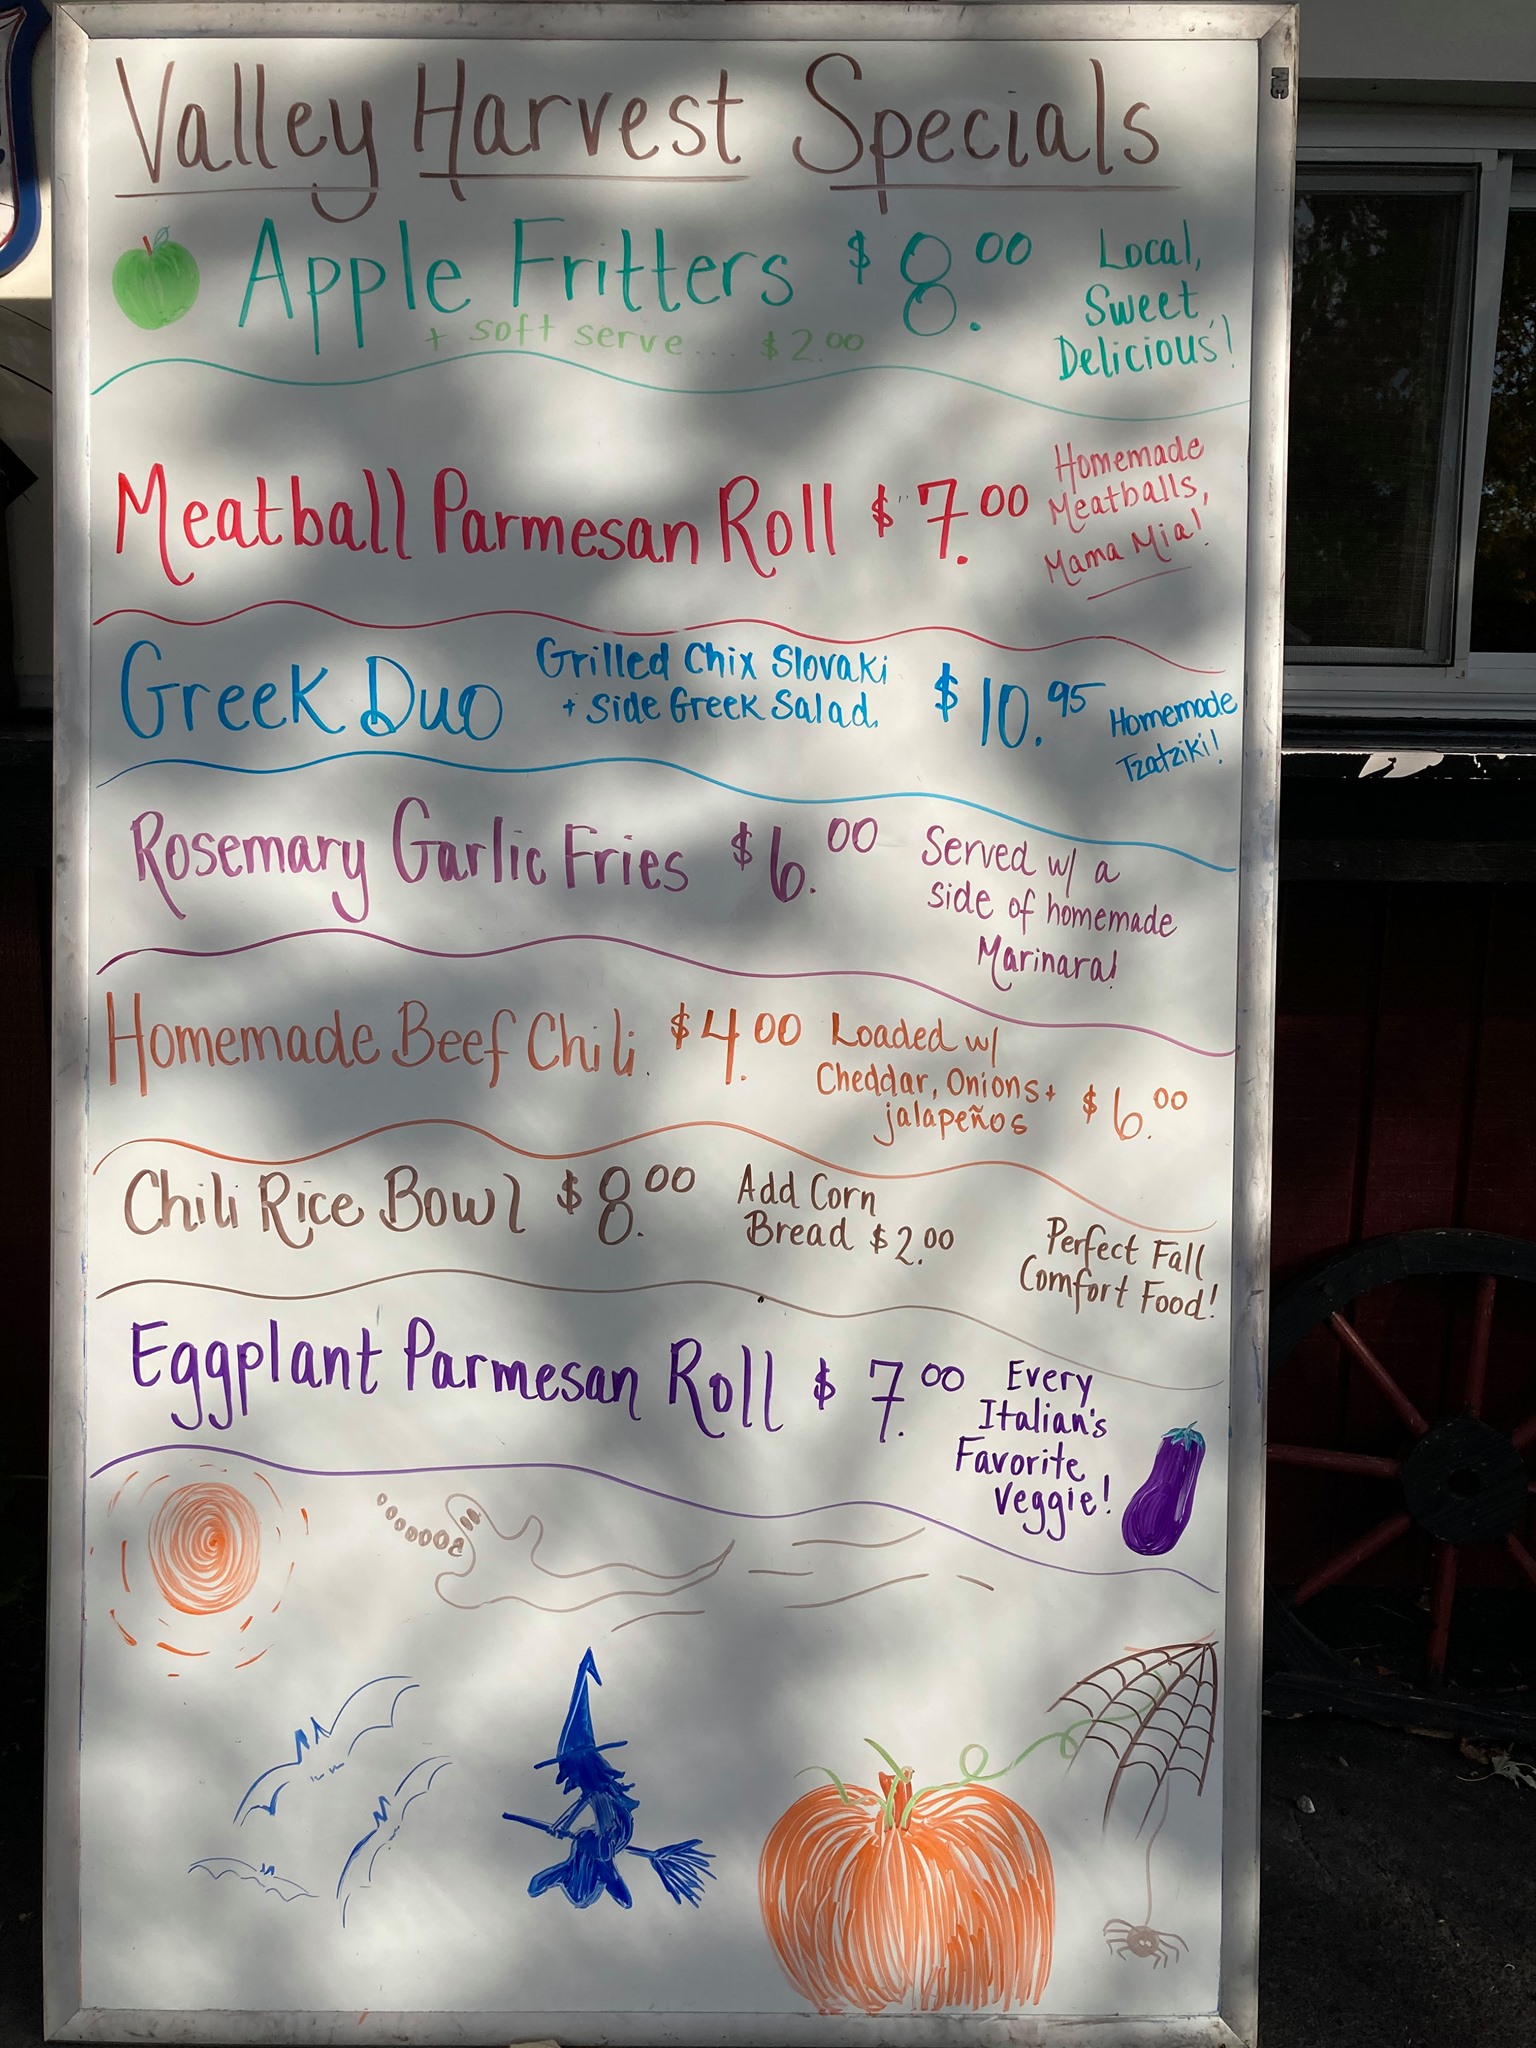 Valley Harvest Specials
Apple Fritters $8.00
+ soft serve... $2.00
Local,
Sweet,
Delicious!
Meatball Parmesan Roll $7.00
Homemade
Meatballs,
Mama Mia!
Greek Duo
Grilled Chix Slovaki
+ Side Greek Salad.
$10.95
Homemade
Tzatziki!
Rosemary Garlic Fries $6.00
Served w/ a
side of homemade
Marinara!
Homemade Beef Chili $4.00
Loaded w/
Cheddar, Onions +
jalapeños
$6.00
Chili Rice Bowl $8.00
Add Corn
Bread $2.00
Perfect Fall
Comfort Food!
Eggplant Parmesan Roll $7.00
Every
Italian's
Favorite
Veggie!